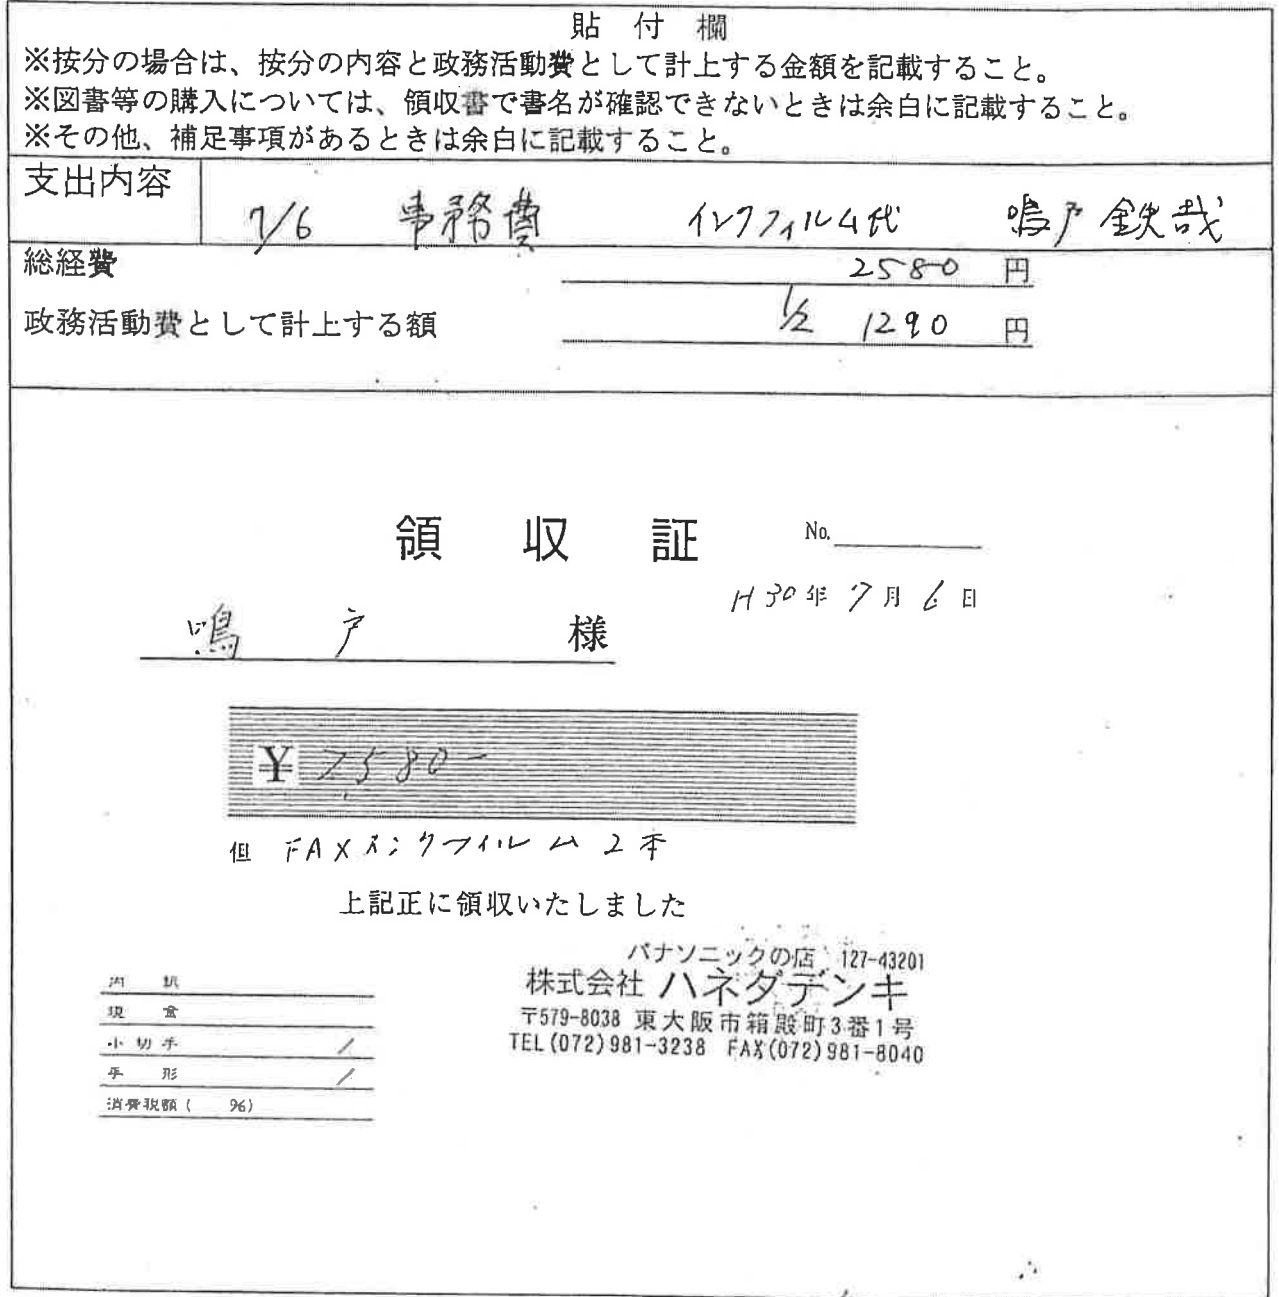 貼付欄
※按分の場合は、按分の内容と政務活動費として計上する金額を記載すること。
※図書等の購入については、領収書で書名が確認できないときは余白に記載すること。
※その他、補足事項があるときは余白に記載すること。
支出内容 7/6 事務費 インクフィルム代 鳴戸 鉄哉
総経費 2580 円
政務活動費として計上する額 1/2 1290 円
領収証 No.
H30年7月6日
鳴戸 様
¥2580-
但 FAXインクフィルム2本
上記正に領収いたしました
パナソニックの店 127-43201
株式会社 ハネダデンキ
〒579-8038 東大阪市箱殿町3番1号
TEL(072)981-3238 FAX(072)981-8040
内訳
現金
小切手 /
手形 /
消費税額( %)